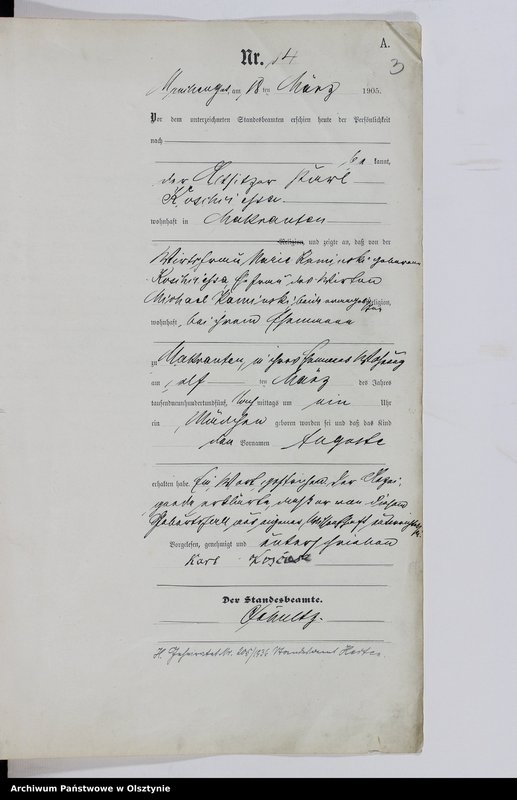 A.
3
Nr. 14
am 18 ten März 1905.
Vor dem unterzeichneten Standesbeamten erschien heute der Persönlichkeit
nach
kannt,
der Altsitzer Karl
wohnhaft in Makrauten
Religion, und zeigte an, daß von der
Wirtsfrau Marie Kaminski geborene
Ehefrau des Wirten
Michael Kaminski, beide evangelischer Religion,
wohnhaft bei ihrem Ehemann
zu Makrauten, in ihres Ehemannes Wohnung
am elf ten März des Jahres
tausendneunhundertundfünf, Nachmittags um ein Uhr
ein Mädchen geboren worden sei und daß das Kind
den Vornamen Auguste
erhalten habe. Ein Wort gestrichen. Der
erklärte, daß er von diesem
Geburtsfall aus eigener Wissenschaft unterrichtet sei.
Vorgelesen, genehmigt und unterschrieben
Karl
Der Standesbeamte.
Schultz.
H. Geheiratet Nr. Standesamt
Archiwum Państwowe w Olsztynie